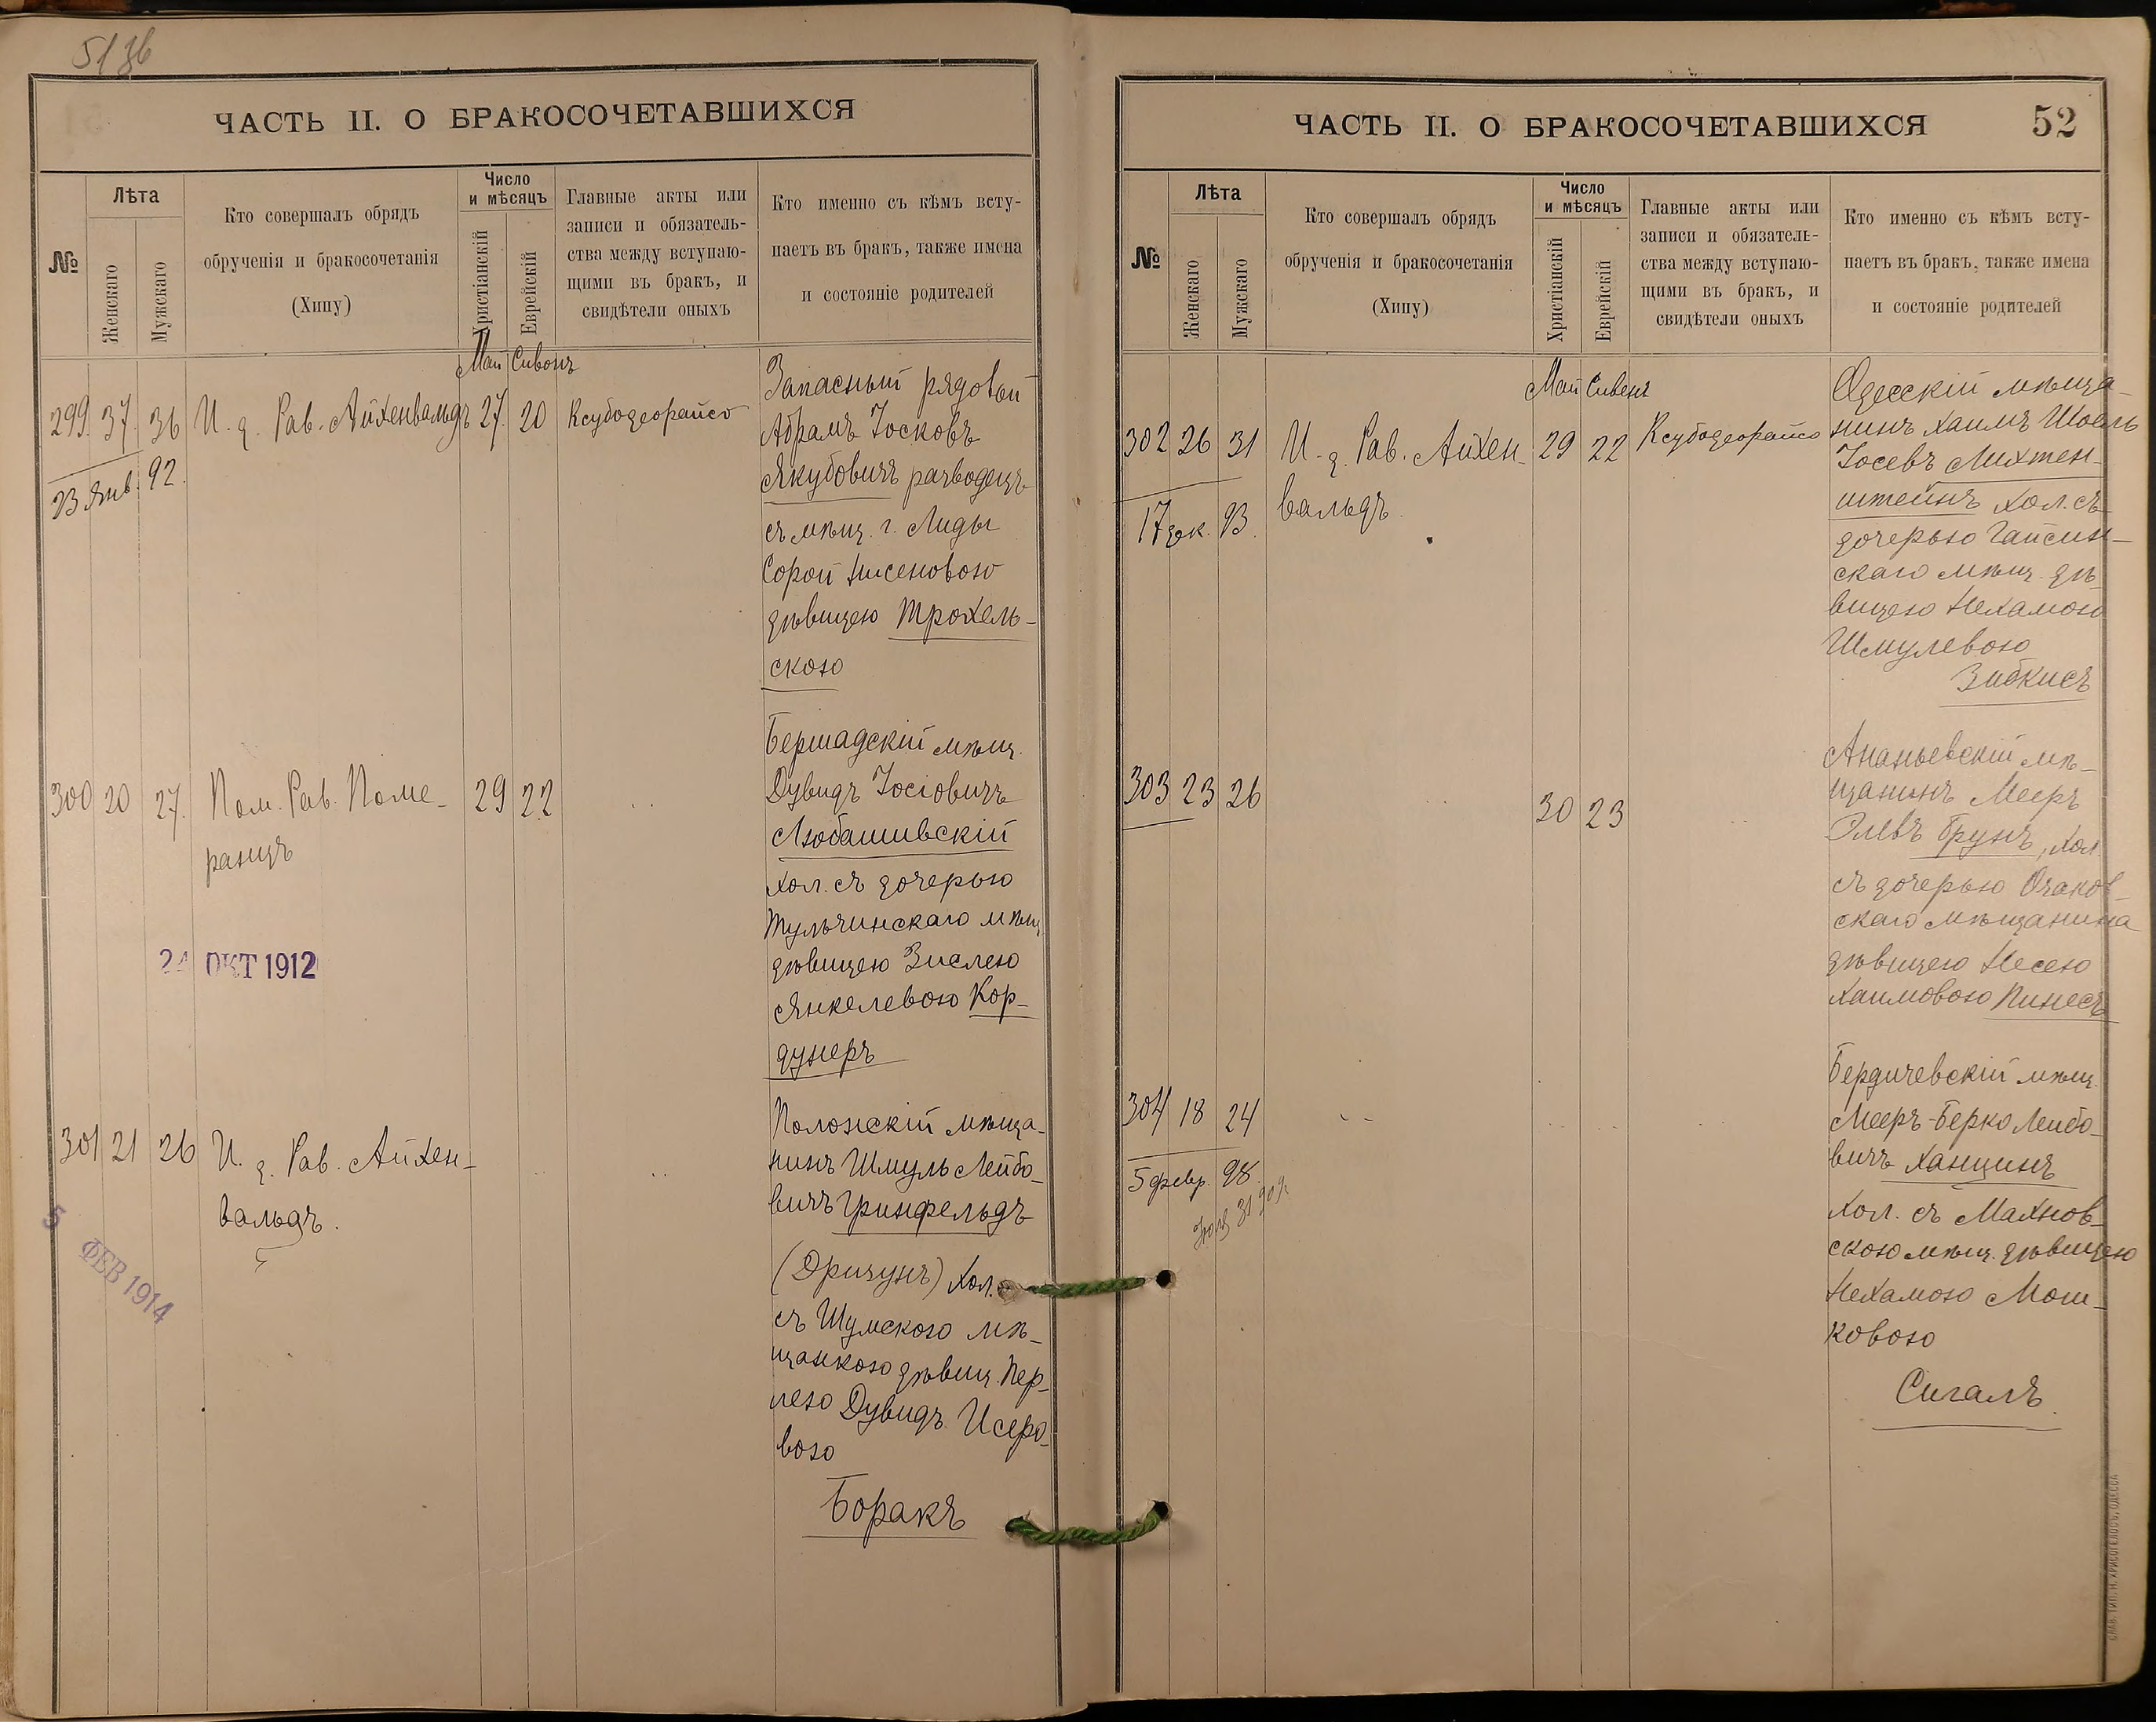 51 36
ЧАСТЬ II. О БРАКОСОЧЕТАВШИХСЯ
№
Лѣта
Женскаго
Мужскаго
Кто совершалъ обрядъ
обрученія и бракосочетанія
(Хипу)
Число
и мѣсяцъ
Христіанскій
Еврейскій
Главные акты или
записи и обязатель-
ства между вступаю-
щими въ бракъ, и
свидѣтели оныхъ
Кто именно съ кѣмъ всту-
паетъ въ бракъ, также имена
и состояніе родителей
Май Сивонъ
299 37 36 И. д. Рав. Айхенвальдъ 27 20 Ксубодеорайсо
23 Янв. 92.
Запасный рядовой
Абрамъ Іосковъ
Якубовичъ разводецъ
съ мѣщ. г. Лиды
Сорой Нисеновою
дѣвицею Трохель-
скою
300 20 27. Пом. Рав. Поме-
ранцъ
29 22 . .
Бершадскій мѣщ.
Дувидъ Іосіовичъ
Любашивскій
хол. съ дочерью
Тульчинскаго мѣщ.
дѣвицею Зислею
Янкелевою Кор-
дунеръ
24 ОКТ 1912
301 21 26 И. д. Рав. Айхен-
вальдъ.
. . . .
Полонскій мѣща-
нинъ Шмуль Лейбо-
вичъ Гринфельдъ
(Дричунъ) хол.
съ Шумскою мѣ-
щанкою дѣвиц. Пер-
лею Дувидъ Исеро-
вою
Боракъ
5 ФЕВ 1914
ЧАСТЬ II. О БРАКОСОЧЕТАВШИХСЯ
52
№
Лѣта
Женскаго
Мужскаго
Кто совершалъ обрядъ
обрученія и бракосочетанія
(Хипу)
Число
и мѣсяцъ
Христіанскій
Еврейскій
Главные акты или
записи и обязатель-
ства между вступаю-
щими въ бракъ, и
свидѣтели оныхъ
Кто именно съ кѣмъ всту-
паетъ въ бракъ, также имена
и состояніе родителей
Май Сивенъ
302 26 31 И. д. Рав. Айхен-
вальдъ.
29 22 Ксубодеорайсо
17 дек. 93.
Одесскій мѣща-
нинъ Хаимъ Шоель
Іосевъ Лихтен-
штейнъ хол. съ
дочерью Гайсин-
скаго мѣщ. дѣ-
вицею Нехамою
Шмулевою
Зибкисъ
303 23 26 . . 30 23 . .
Ананьевскій мѣ-
щанинъ Мееръ
Элевъ Грунъ, хол.
съ дочерью Очаков-
скаго мѣщанина
дѣвицею Несею
Хаимовою Пинесъ
304 18 24 . . . . . . . .
5 февр. 98.
31 909
Бердичевскій мѣщ.
Мееръ-Берко Лейбо-
вичъ Ханцинъ
хол. съ Махнов-
скою мѣщ. дѣвицею
Нехамою Мош-
ковою
Сигалъ.
СЛАВ. ТИП. Н. ХРИСОГЕЛОСЪ, ОДЕССА